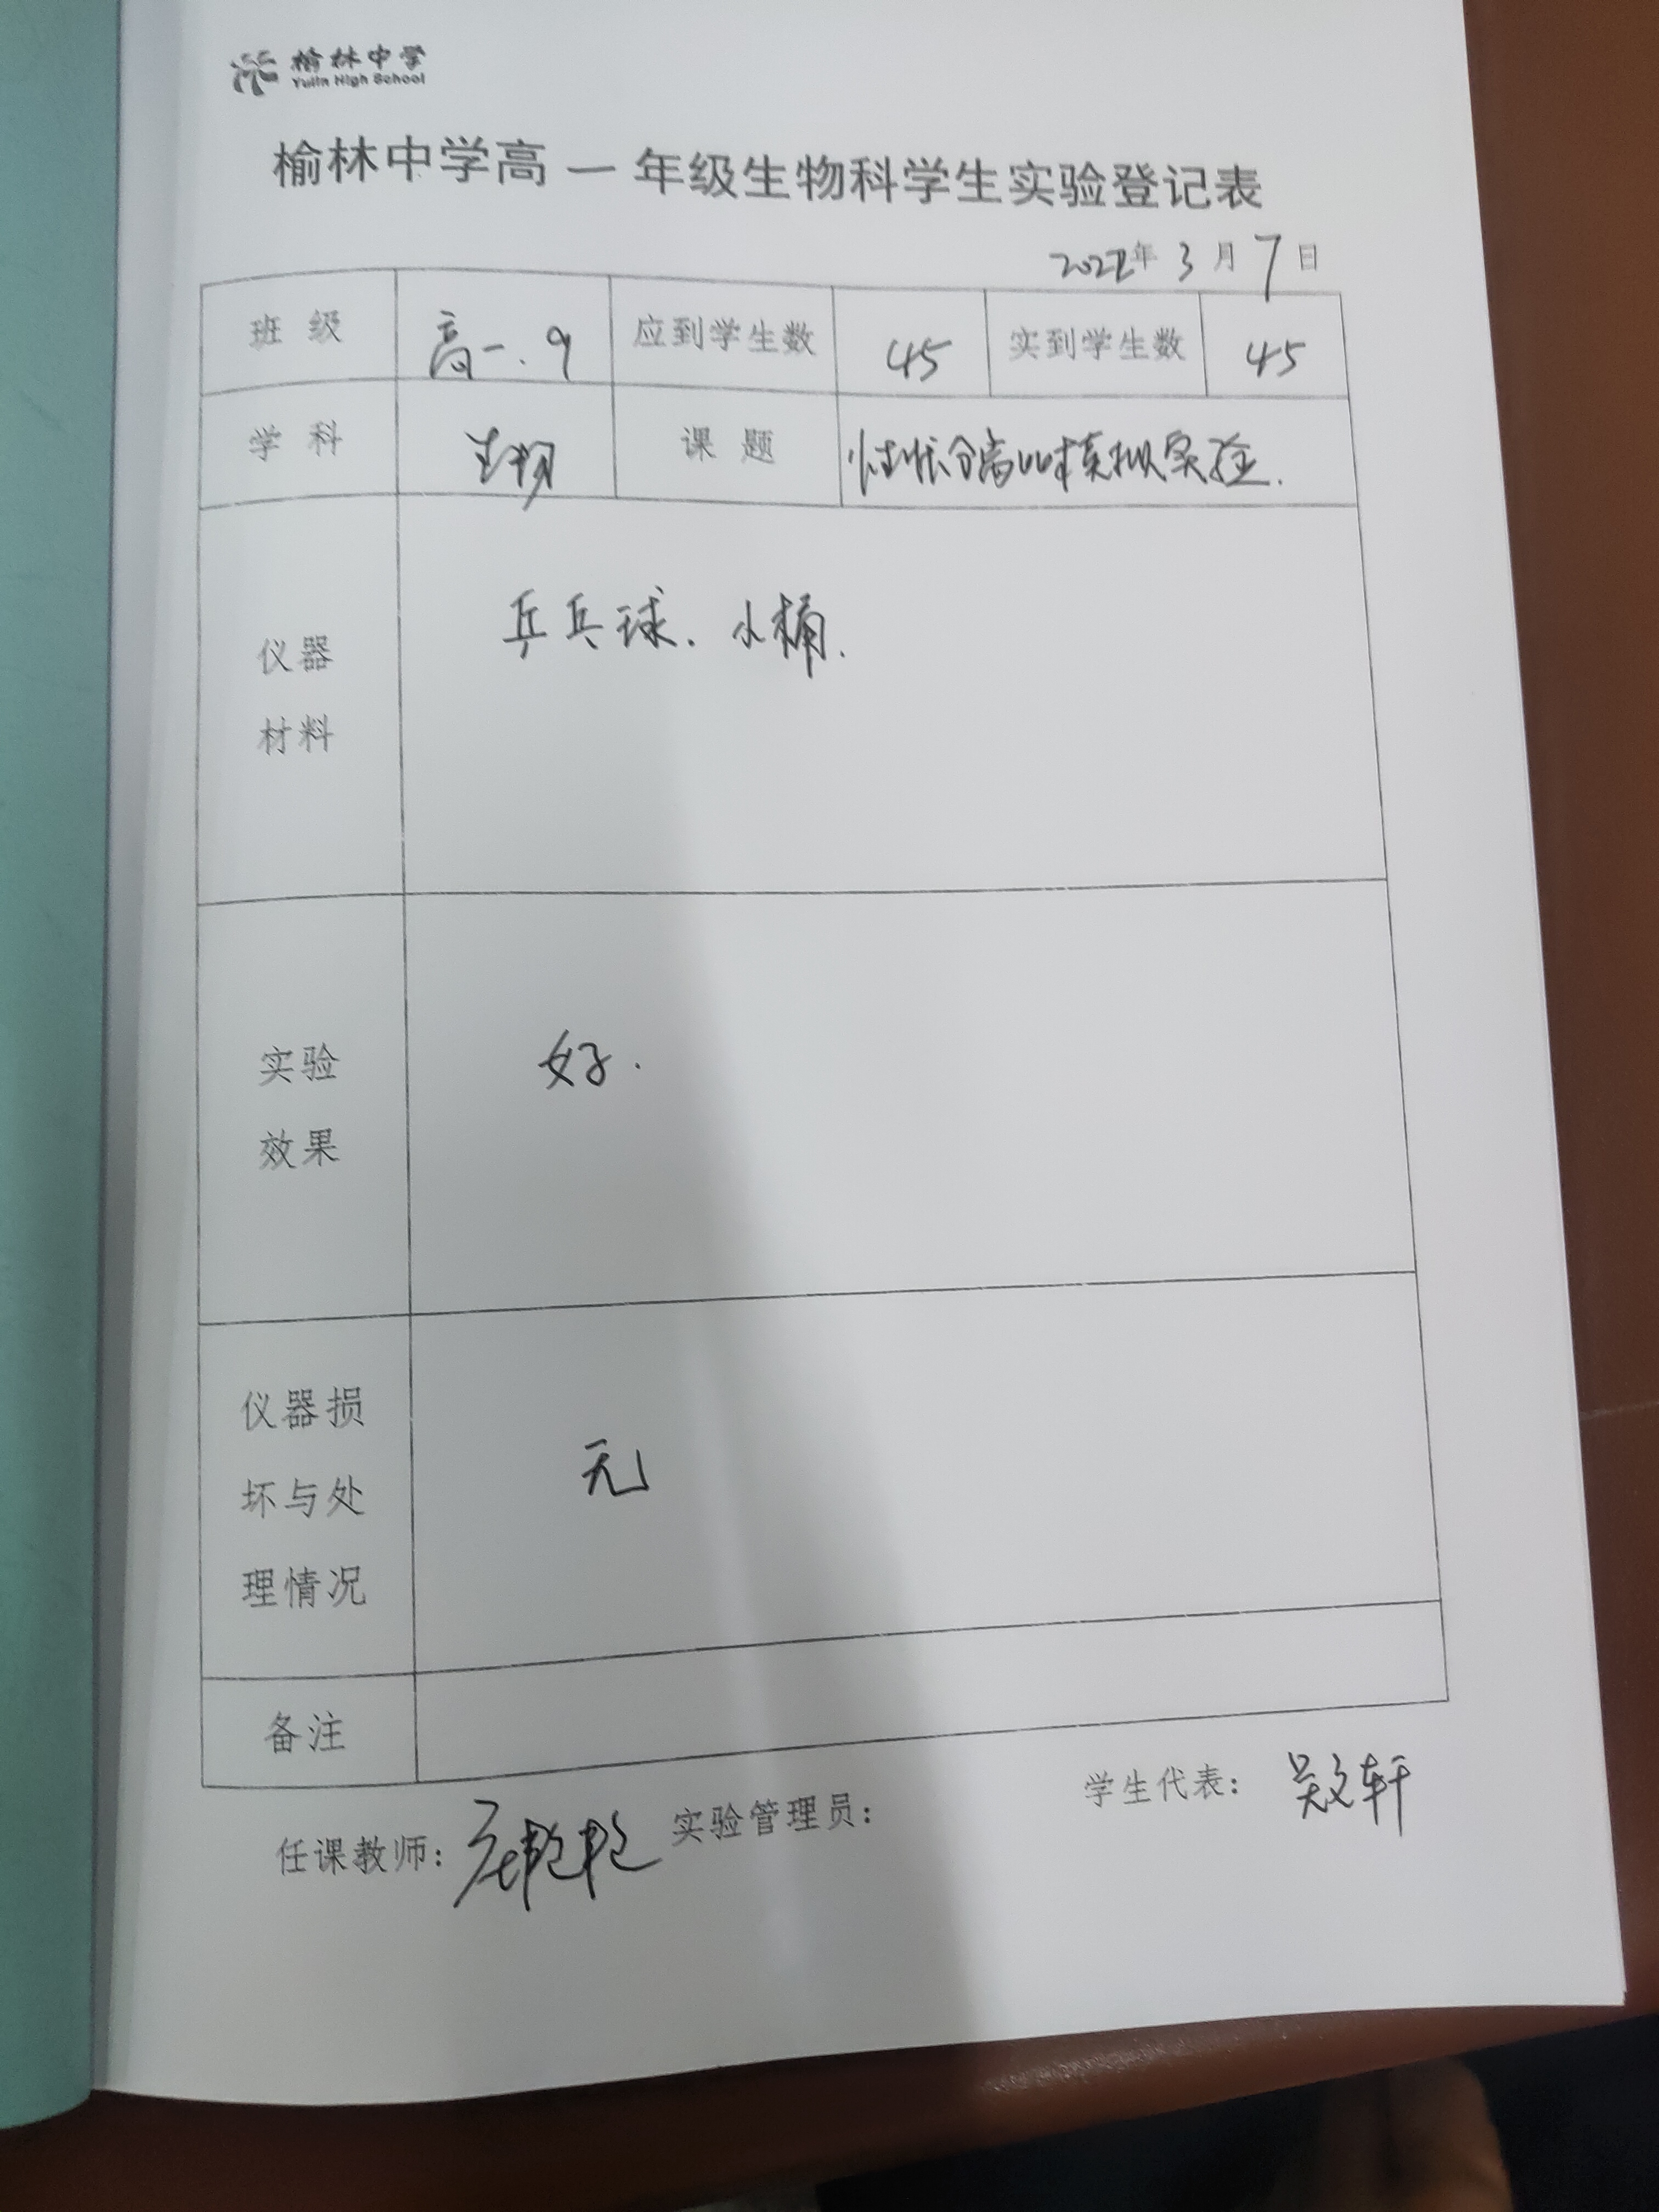 榆林中学
Yulin High School
榆林中学高一年级生物科学生实验登记表
2022年 3月 7日
班级 高一.9 应到学生数 45 实到学生数 45
学科 生物 课题 性状分离比模拟实验.
仪器
材料
乒乓球. 小桶.
实验
效果
好.
仪器损
坏与处
理情况
无
备注
任课教师: 实验管理员: 学生代表: 吴文轩